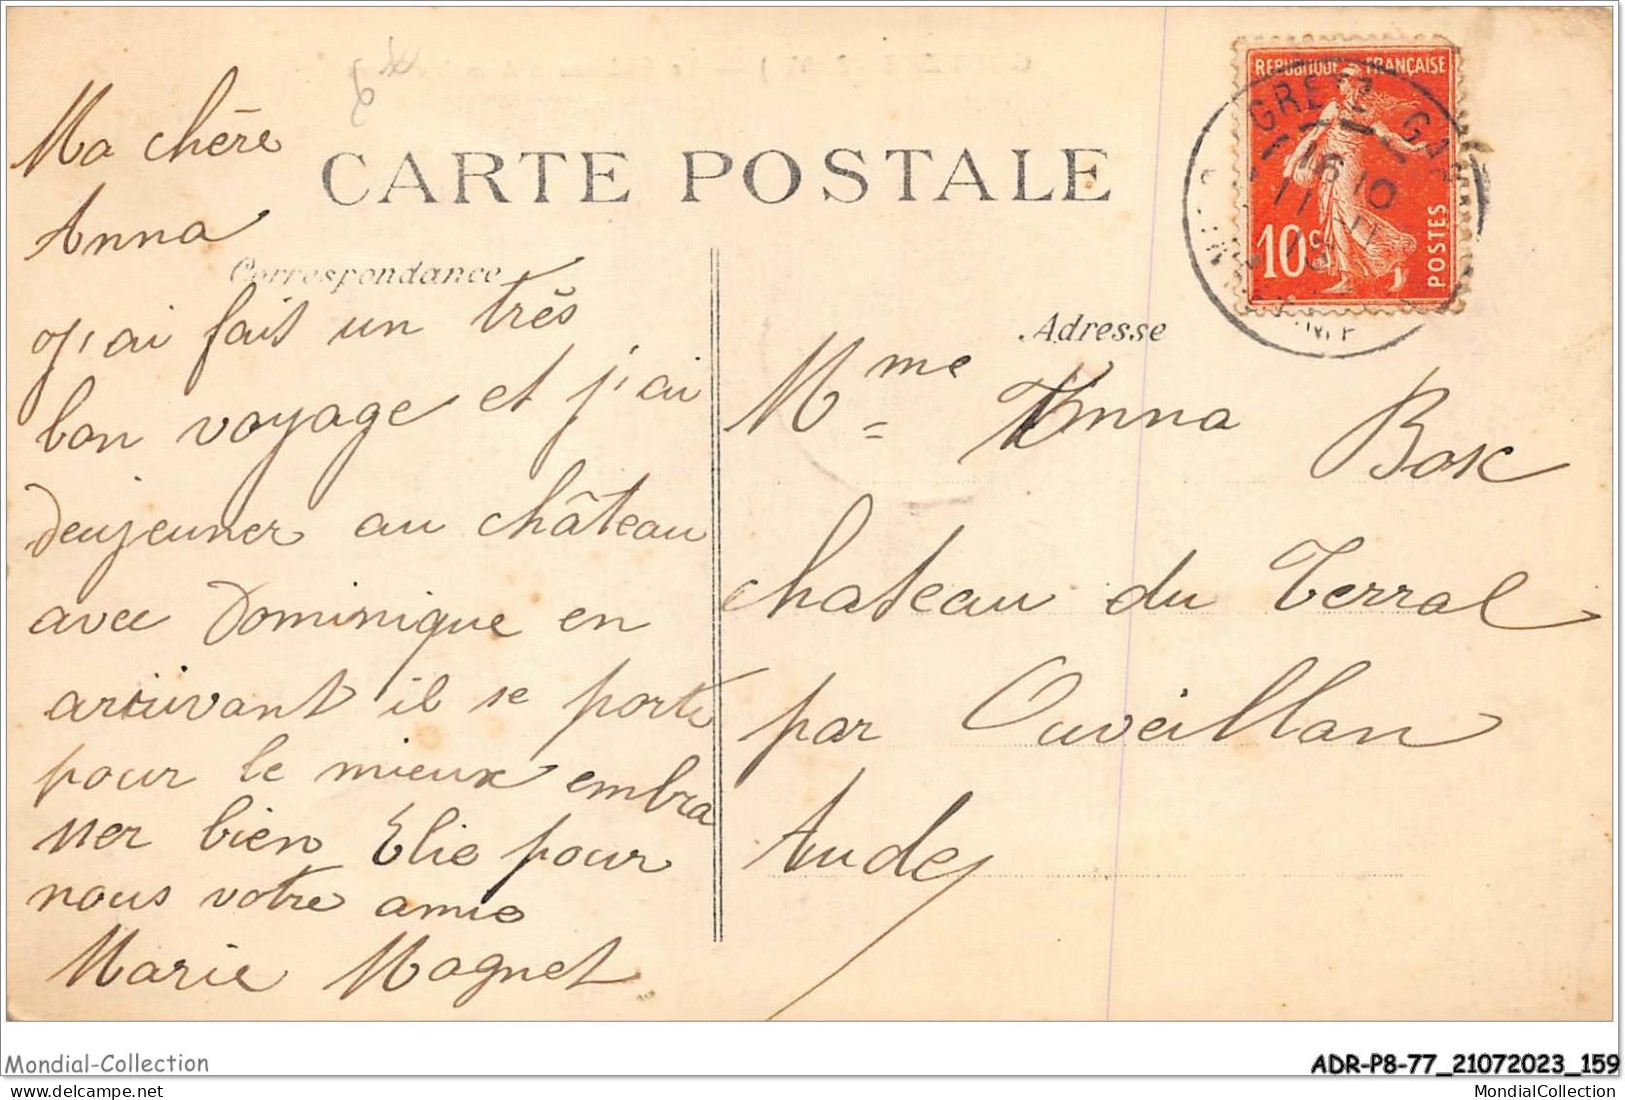 CARTE POSTALE
Ma chère
Anna
Correspondance
j'ai fait un très
bon voyage et j'ai
deujeuner au château
avec Dominique en
arrivant il se porte
pour le mieux embra
sser bien Elie pour
nous votre amie
Marie Magnet
REPUBLIQUE FRANÇAISE
10c
POSTES
GRETZ
16 10
11 - 11
Adresse
Mme Anna Bosc
chateau du Terral
par Ouveillan
Aude
Mondial-Collection
ADR-P8-77_21072023_159
MondialCollection